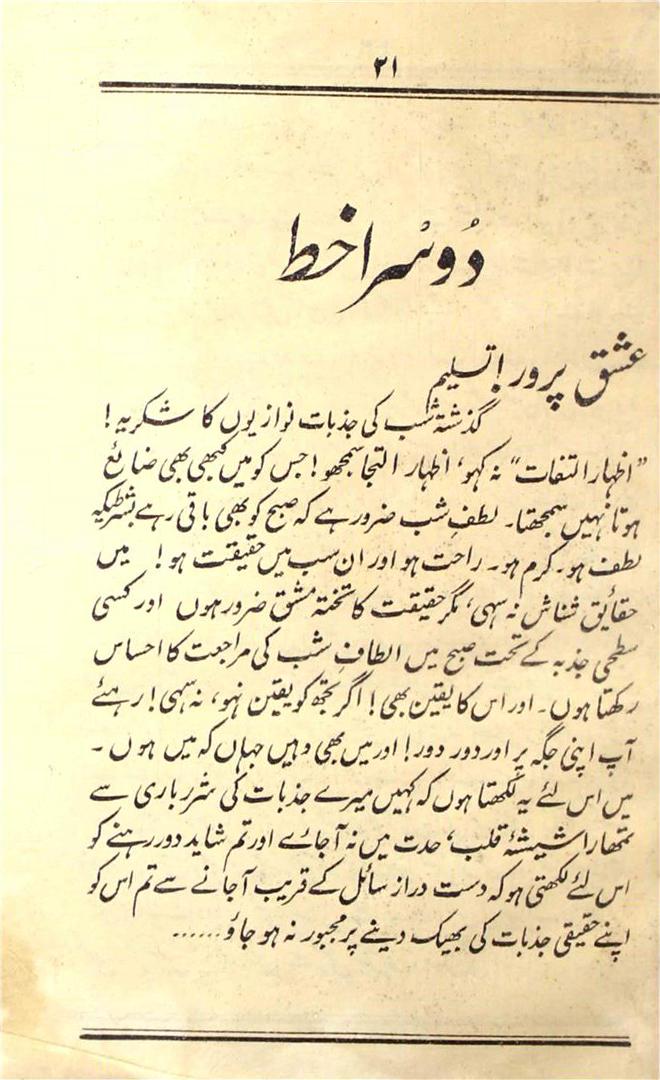 ۲۱
دُوسْرا خط
عشق پرور! تسلیم
گذشتہ شب کی جذبات نوازیوں کا شکریہ!
"اظہار التفات" نہ کہو، اظہار التجا سمجھو! جس کو میں کبھی بھی ضائع
ہوتا نہیں سمجھتا۔ لطفِ شب ضرور ہے کہ صبح کو بھی باقی رہے بشرطیکہ
لطف ہو۔ کرم ہو۔ راحت ہو اور ان سب میں حقیقت ہو! میں
حقایق شناش نہ سہی، مگر حقیقت کا تختۂ مشق ضرور ہوں اور کسی
سطحی جذبہ کے تحت صبح میں الطافِ شب کی مراجعت کا احساس
رکھتا ہوں۔ اور اس کا یقین بھی! اگر تجھ کو یقین نہو، نہ سہی! رہئے
آپ اپنی جگہ پر اور دور دور! اور میں بھی وہیں جہاں کہ میں ہوں۔
میں اس لئے یہ لکھتا ہوں کہ کہیں میرے جذبات کی شرر باری سے
تمھارا شیشۂ قلب، حدت میں نہ آجائے اور تم شاید دور رہنے کو
اس لئے لکھتی ہو کہ دست دراز سائل کے قریب آجانے سے تم اس کو
اپنے حقیقی جذبات کی بھیک دینے پر مجبور نہ ہو جاؤ......